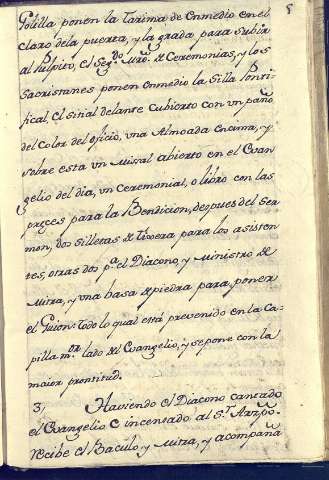 8
Golilla ponen la Tarima de Enmedio en el
claro dela puerta, y la grada para Subir
al Pulpito, el Seg.do Mro. de Ceremonias, y los
Sacristanes ponen enmedio la Silla Ponti-
fical, el sitial delante Cubierto con un paño
del Color del oficio, una Almoada encima, y
sobre esta un Missal abierto en el Evan-
gelio del dia, un Ceremonial, o libro con las
preces para la Bendicion, despues del Ser
mon, dos Silletas de tixera para los asisten-
tes, otras dos p.a el Diacono, y Ministro de
Mitra, y una basa de piedra para poner
el Guion: todo lo qual está prevenido en la Ca-
pilla m.or lado del Evangelio, y se pone con la
maior prontitud.
3, Haviendo el Diacono cantado
el Evangelio è incensado al S.r Arzpo.
recibe el Baculo, y Mitra, y acompaña